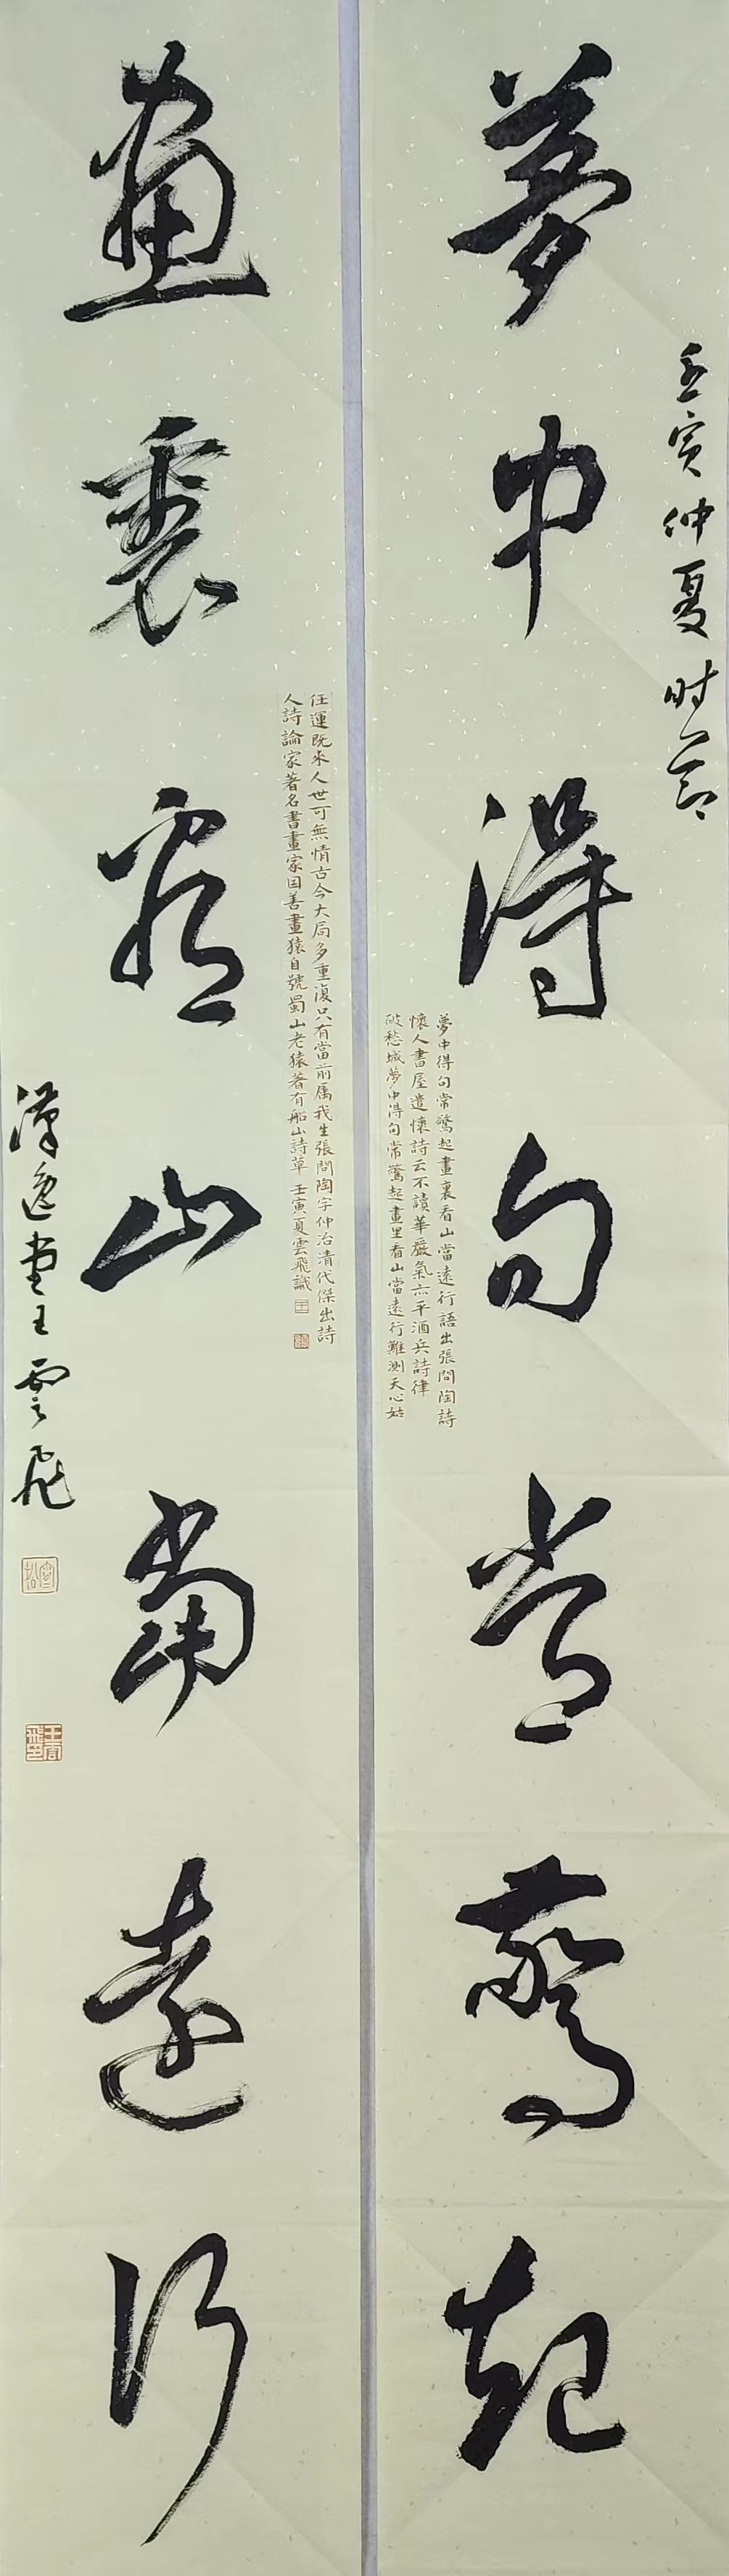 壬寅仲夏时节
夢中得句常驚起
夢中得句常驚起畫裏看山當遠行語出張問陶詩
懷人書屋遣懷詩云不讀華嚴氣亦平酒兵詩律
破愁城夢中得句常驚起畫里看山當遠行難測天心姑
任運既來人世可無情古今大局多重復只有當前屬我生張問陶字仲冶清代傑出詩
人詩論家著名書畫家因善畫猿自號蜀山老猿著有船山詩草 壬寅夏雲飛識
畫裏看山當遠行
漢逸堂王雲飛
王雲飛印